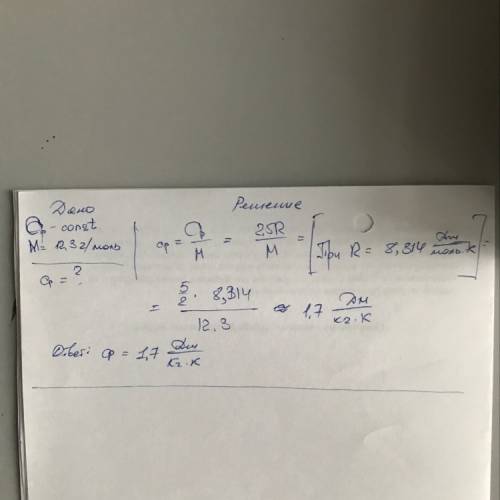 Дано
Cp - const
M = 12,3 г/моль
cp = ?
Решение
cp = Cp / M = 2,5R / M = [При R = 8,314 Дж / моль·К] =
= 5/2 · 8,314 / 12,3 ≈ 1,7 Дж / кг·К
Ответ: cp = 1,7 Дж / кг·К